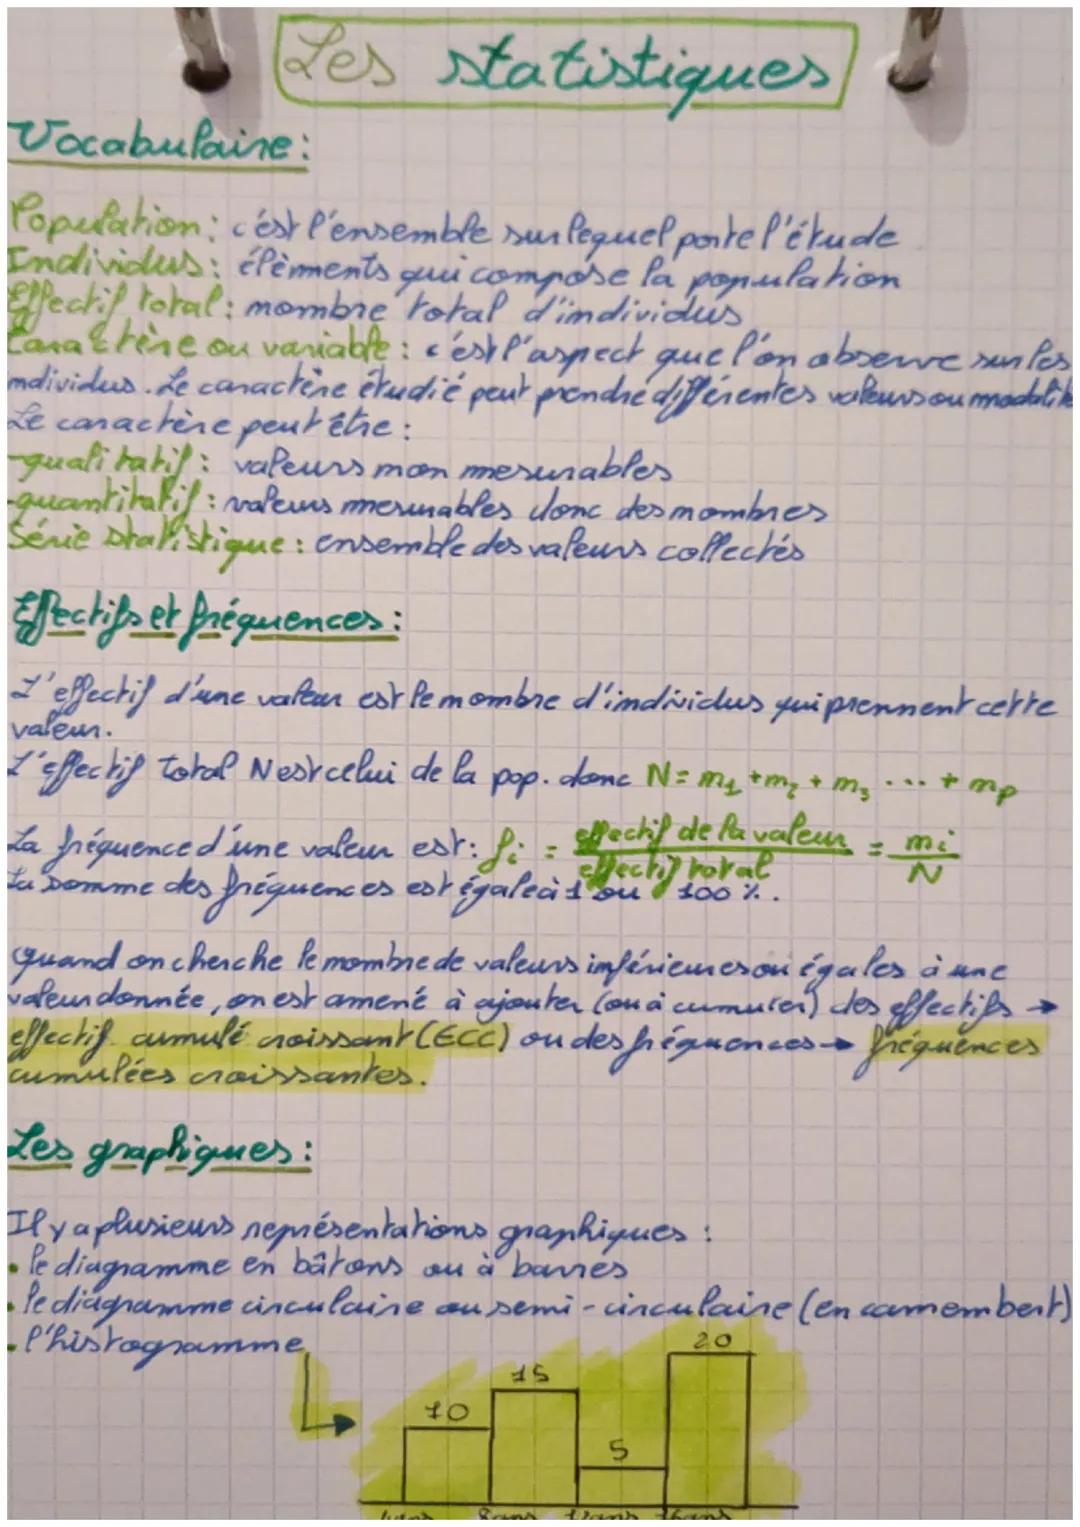 Les statistiques
Vocabulaire :
Population : c'est l'ensemble sur lequel porte l'étude
Individus : élèments qui compose la population
Effectif total : nombre total d'individus
Caractère ou variable : c'est l'aspect que l'on observe sur les
individus. Le caractère étudié peut prendre différentes valeurs ou modalité
Le caractère peut être :
-qualitatif : valeurs non mesurables
-quantitatif : valeurs mesurables donc des nombres
Série statistique : ensemble des valeurs collectés
Effectifs et fréquences :
L'effectif d'une valeur est le nombre d'individus qui prennent cette
valeur.
L'effectif total N est celui de la pop. donc N = n₁ + n₂ + n₃ ... + np
La fréquence d'une valeur est : fi = effectif de la valeur / effectif total = ni / N
La somme des fréquences est égale à 1 ou 100 %.
quand on cherche le nombre de valeurs inférieures ou égales à une
valeur donnée, on est amené à ajouter (ou à cumuler) des effectifs →
effectif cumulé croissant (ECC) ou des fréquences → fréquences
cumulées croissantes.
Les graphiques :
Il y a plusieurs représentations graphiques :
• le diagramme en bâtons ou à barres
• le diagramme circulaire ou semi-circulaire (en camembert)
• l'histogramme
20
15
10
5
8ans 12ans 16ans